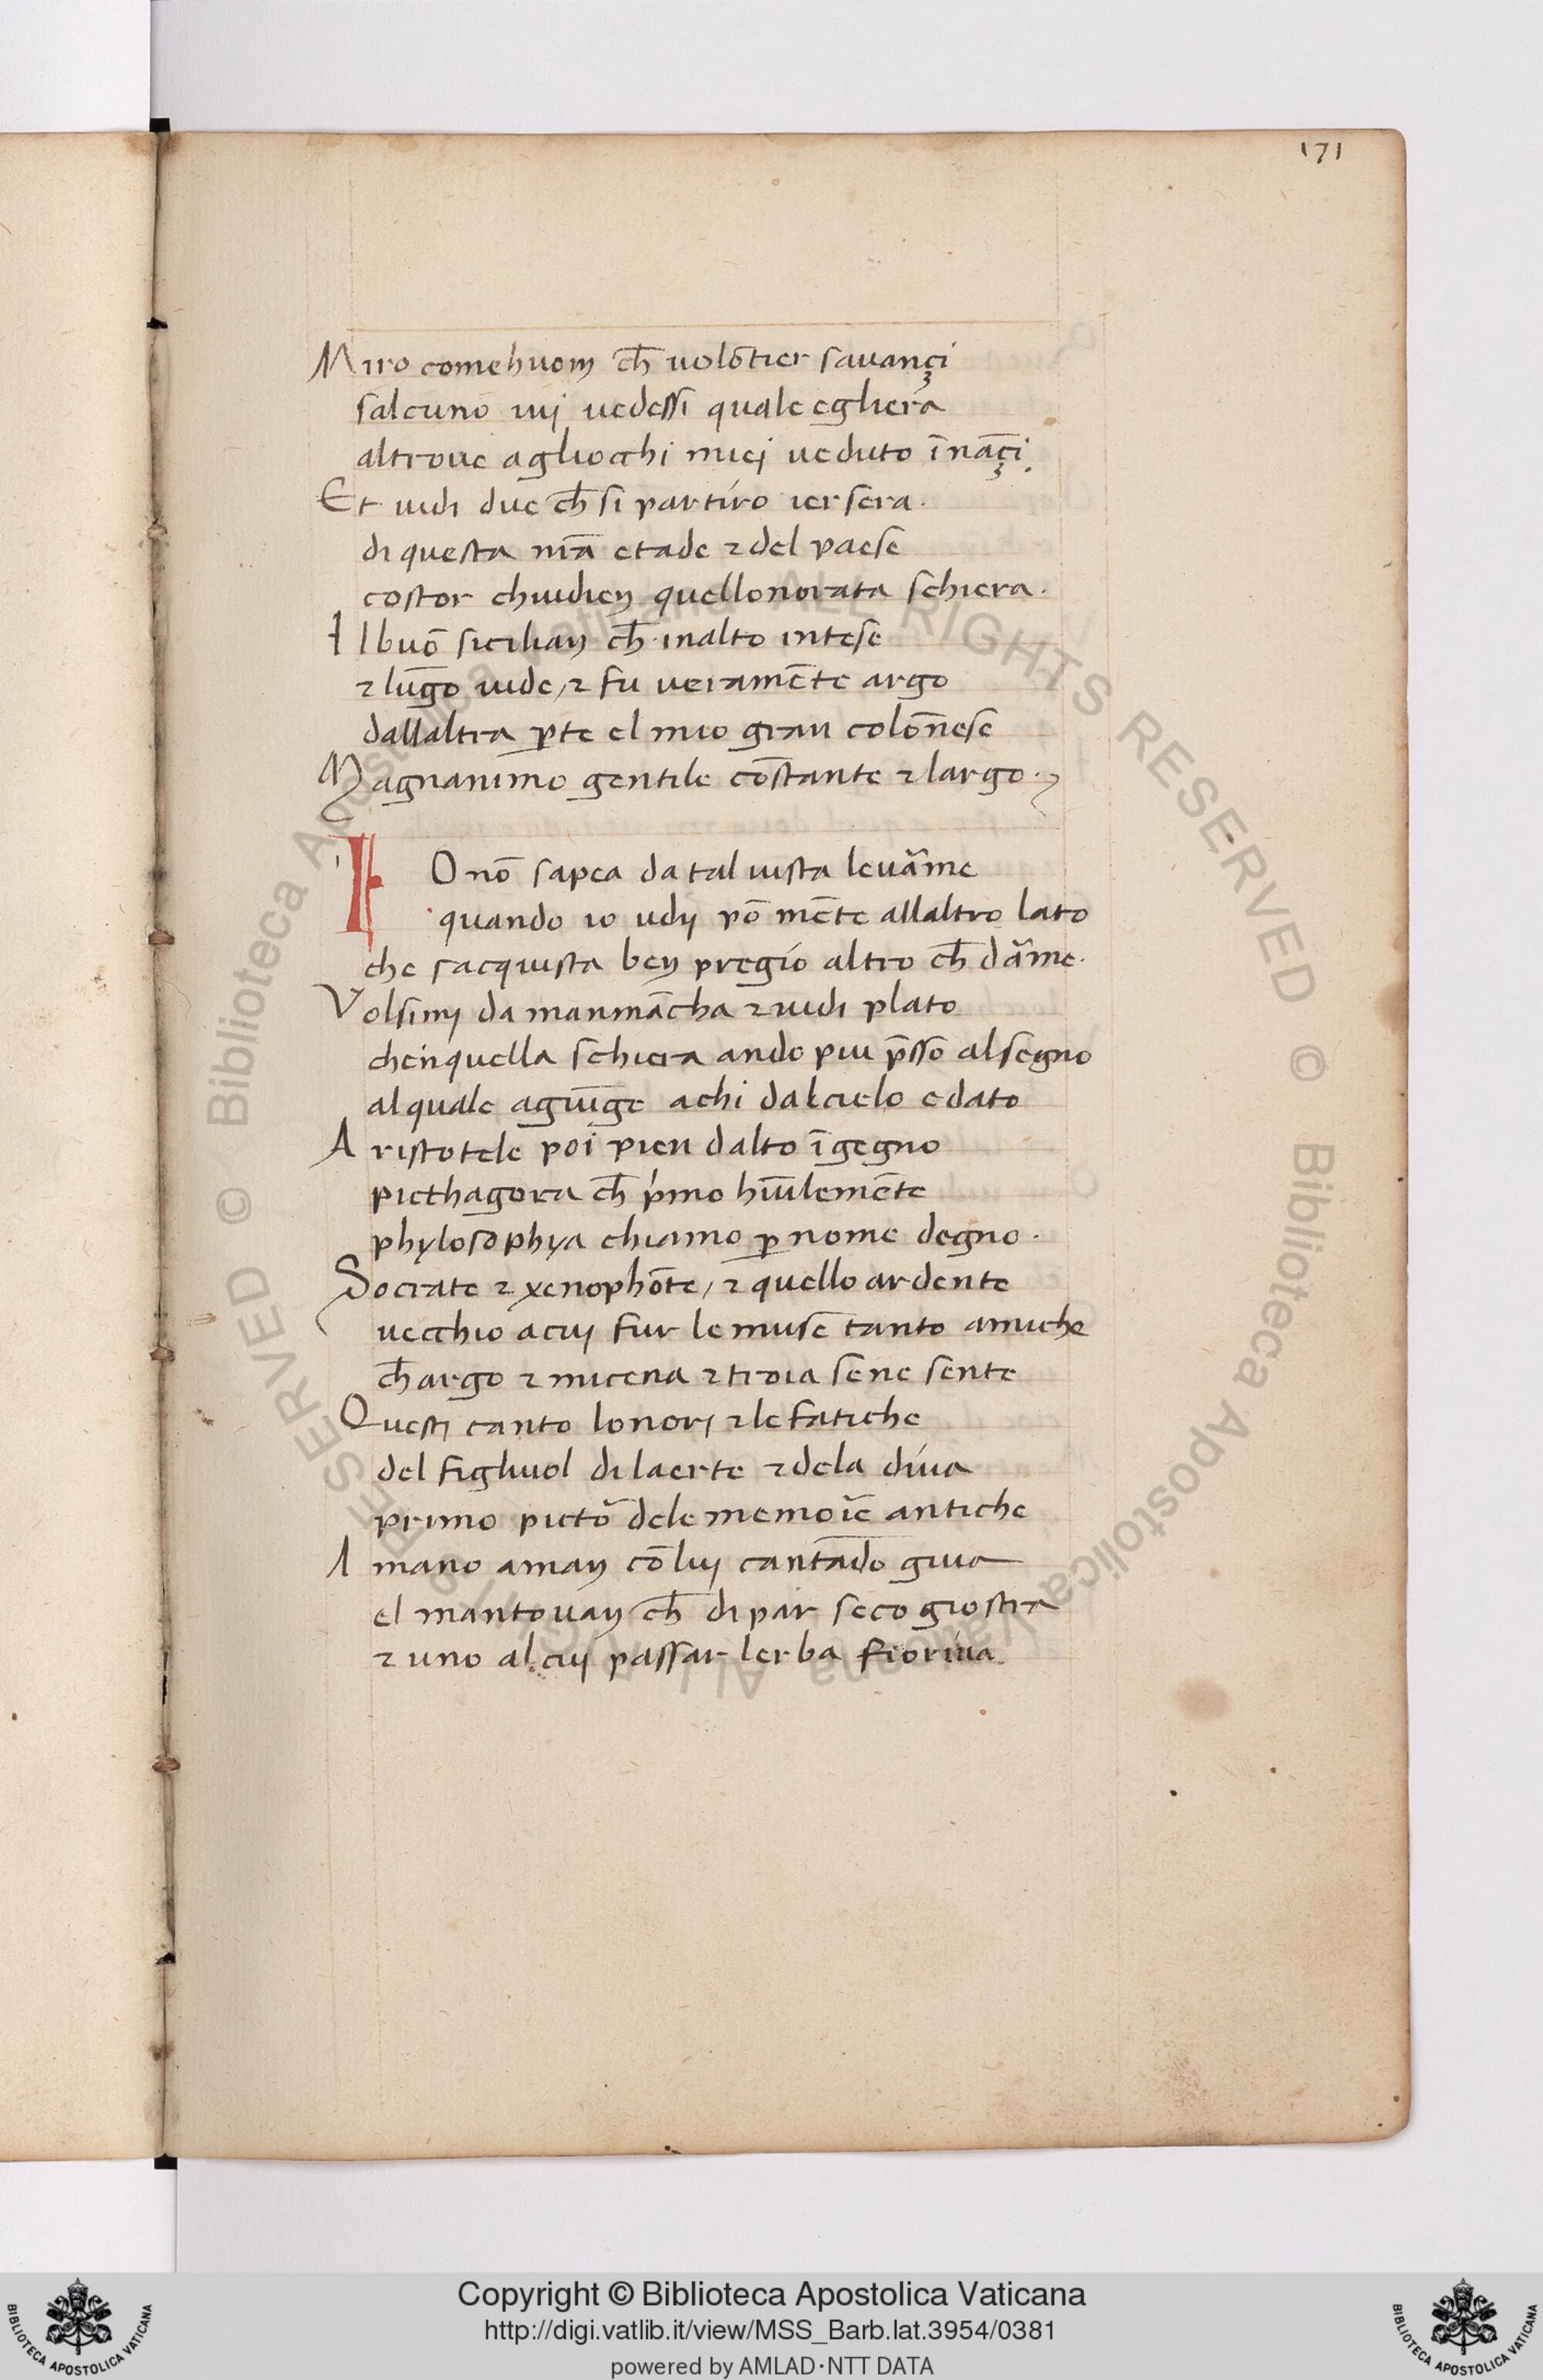 171
Miro comehuom ch̄ uolōtier sauançi
salcuno vuj uedessi quale eghera
altroue agliocchi miej ueduto īnāçi.
Et uidi due ch̄ si partiro ier sera.
di questa nr̄a etade ⁊ del paese
costor chiudien quellonorata schiera.
Il buō sicilian ch̄ inalto intese
⁊ lūgo uide, ⁊ fu ueramēte argo
dallaltra ꝑte el mio gran colōnese
Magnanimo gentile cōstante ⁊ largo.
IO nō sapea da tal uista leuāme
quando io udij pō mēte allaltro lato
che sacquista ben pregio altro ch̄ dāme.
Volsimj da manmācha ⁊ uidi plato
cheinquella schiera ando piu p̄sso al segno
al quale agiūge achi dal cielo e dato
Aristotele poi pien dalto īgegno
picthagora ch̄ ṕmo hūilemēte
phylosophya chiamo ꝑ nome degno.
Socrate ⁊ xenophōte, ⁊ quello ardente
uecchio acuj fur le muse tanto amiche
ch̄ argo ⁊ micena ⁊ troia sene sente
Questi canto lonorj ⁊ le fatiche
del figliuol di laerte ⁊ dela diua
primo pictō dele memoīe antiche
A mano aman cō luj cantādo giua
el mantouan ch̄ di par seco giostra
⁊ uno al cuj passar lerba fioriua.
Copyright © Biblioteca Apostolica Vaticana
http://digi.vatlib.it/view/MSS_Barb.lat.3954/0381
powered by AMLAD·NTT DATA